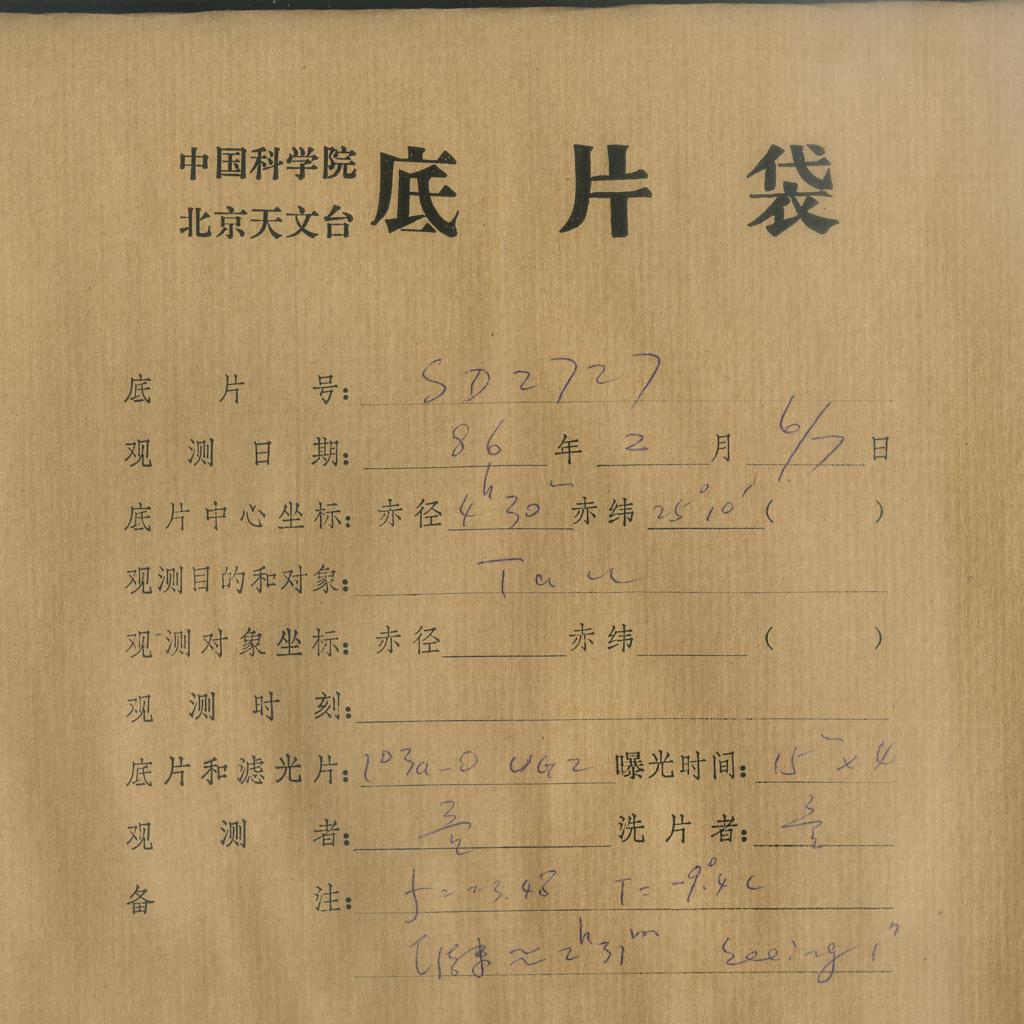 中国科学院
北京天文台
底片袋
底片号: SD2727
观测日期: 86年2月6/7日
底片中心坐标: 赤径4ʰ30ᵐ赤纬25°10′( )
观测目的和对象: Tau
观测对象坐标: 赤径 赤纬 ( )
观测时刻:
底片和滤光片: 103a-O UG2 曝光时间: 15ᵐ×4
观测者: 洗片者:
备注: T=-9°.4C
≈2ʰ31ᵐ seeing 1″